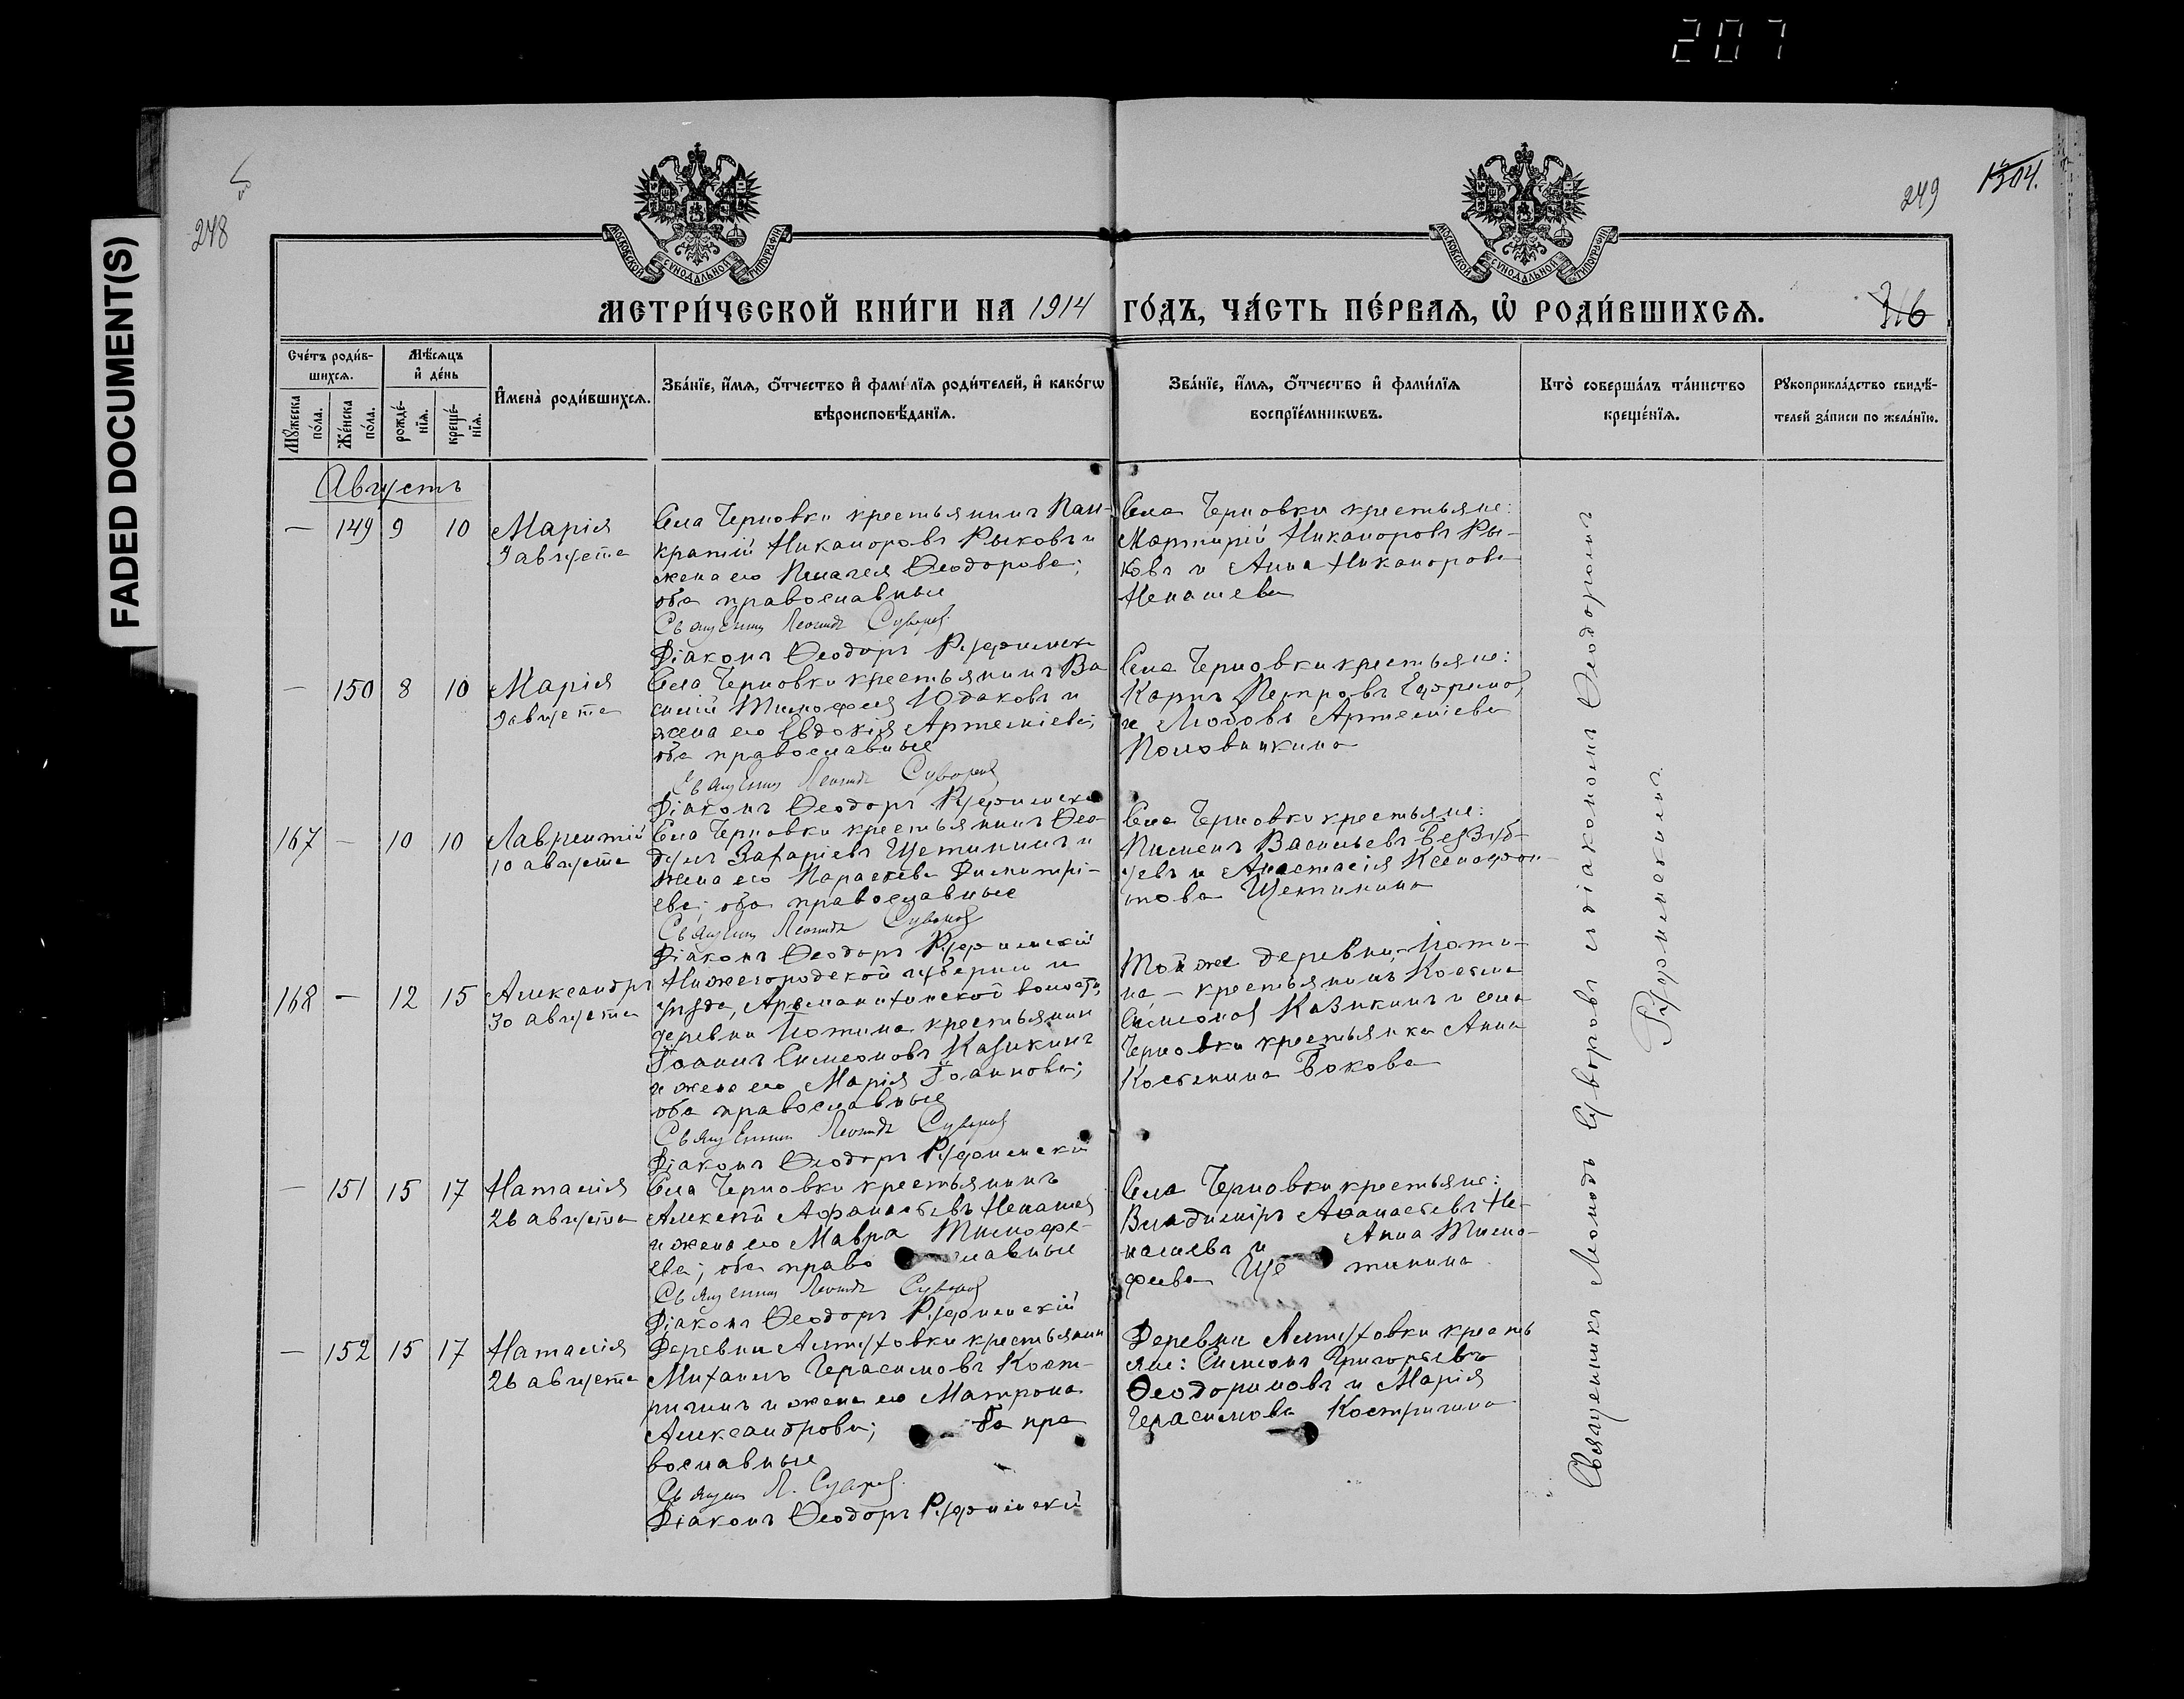 207
FADED DOCUMENT(S)
248
249
1304.
316
МОСКОВСКОЙ СѴНОДАЛЬНОЙ ТИПОГРАФІИ
МОСКОВСКОЙ СѴНОДАЛЬНОЙ ТИПОГРАФІИ
МЕТРИ́ЧЕСКОЙ КНИ́ГИ НА 1914 ГО́ДЪ, ЧА́СТЬ ПЕ́РВАѦ, Ѽ РОДИ́ВШИХСѦ.
Сче́тъ роди́в-
шихсѧ.
Мꙋ́жеска по́ла.
Же́нска по́ла.
Мѣ́сѧцъ
и҆ де́нь
рожде́-
нїѧ.
креще́-
нїѧ.
И҆мена̀ роди́вшихсѧ.
Зва́нїе, и҆́мѧ, ѻ҆́тчество и҆ фамі́лїѧ роди́телей, и҆ како́гѡ
вѣроисповѣ́данїѧ.
Зва́нїе, и҆́мѧ, ѻ҆́тчество и҆ фами́лїѧ
воспрїе́мникѡвъ.
Кто̀ соверша́лъ та́инство
креще́нїѧ.
Рꙋкоприкла́дство свидѣ́-
телей за́писи по жела́нїю.
Августъ
— 149 9 10 Марія
9 августа
Села Черновки крестьянинъ Пан-
кратій Никаноровъ Рыковъ и
жена его Пелагея Ѳеодорова;
оба православные
Священник Леонидъ Суворов
Діаконъ Ѳеодоръ Руфимскі
Села Черновки крестьяне:
Мартирій Никаноровъ Ры-
ковъ и Анна Никанорова
Ненашева
— 150 8 10 Марія
9 августа
Села Черновки крестьянинъ Ва
силій Тимофея Юдаковъ и
жена его Евдокія Артеміева;
оба православные
Священник Леонидъ Суворов
Діаконъ Ѳеодоръ Руфимскі
Села Черновки крестьяне:
Карпъ Петровъ Ефремов,
и Любовь Артеміева
Половинкина
167 — 10 10 Лаврентій
10 августа
Села Черновки крестьянинъ Ѳео-
дулъ Захаріевъ Щетининъ и
жена его Параскева Димитрі-
ева; оба православные
Священник Леонидъ Суворов
Діаконъ Ѳеодоръ Руфимскій
Села Черновки крестьяне:
Пименъ Васильевъ Беззуб-
цевъ и Анастасія Ксенофон-
това Щетинина
168 — 12 15 Александръ
30 августа
Нижегородской губерніи и
уезда, деревни крестьянин
Іоаннъ Симеоновъ Казикинъ
и жена его Марія Іоаннова;
оба православные
Священник Леонидъ Суворов
Діаконъ Ѳеодоръ Руфимскій
Той же деревни
на — крестьянинъ Косьма
Симеонов Казикинъ и села
Черновки крестьянка Анна
Костянина Бокова
— 151 15 17 Наталія
26 августа
Села Черновки крестьянинъ
Алексѣй Афанасьевъ Ненашев
и жена его Мавра Тимофе-
ева; оба право славные
Священник Леонидъ Суворов
Діаконъ Ѳеодоръ Руфимскій
Села Черновки крестьяне:
Владиміръ Аѳанасьевъ Не-
нашевъ и Анна Тимо-
феева Ще тинина
— 152 15 17 Наталія
26 августа
Деревни Алтуховки крестьянин
Михаилъ Герасимовъ Кост-
ричинъ и жена его Матрона
Александрова; ба пра
вославные
Священ Л. Суворов
Діаконъ Ѳеодоръ Руфимскій
Деревни Алтуховки кресть
яне: Симеонъ Григорьевъ
Ѳеодориновъ и Марія
Герасимова Костричина
Священникъ Леонидъ Суворовъ и діакономъ Ѳеодоромъ
Руфимскимъ